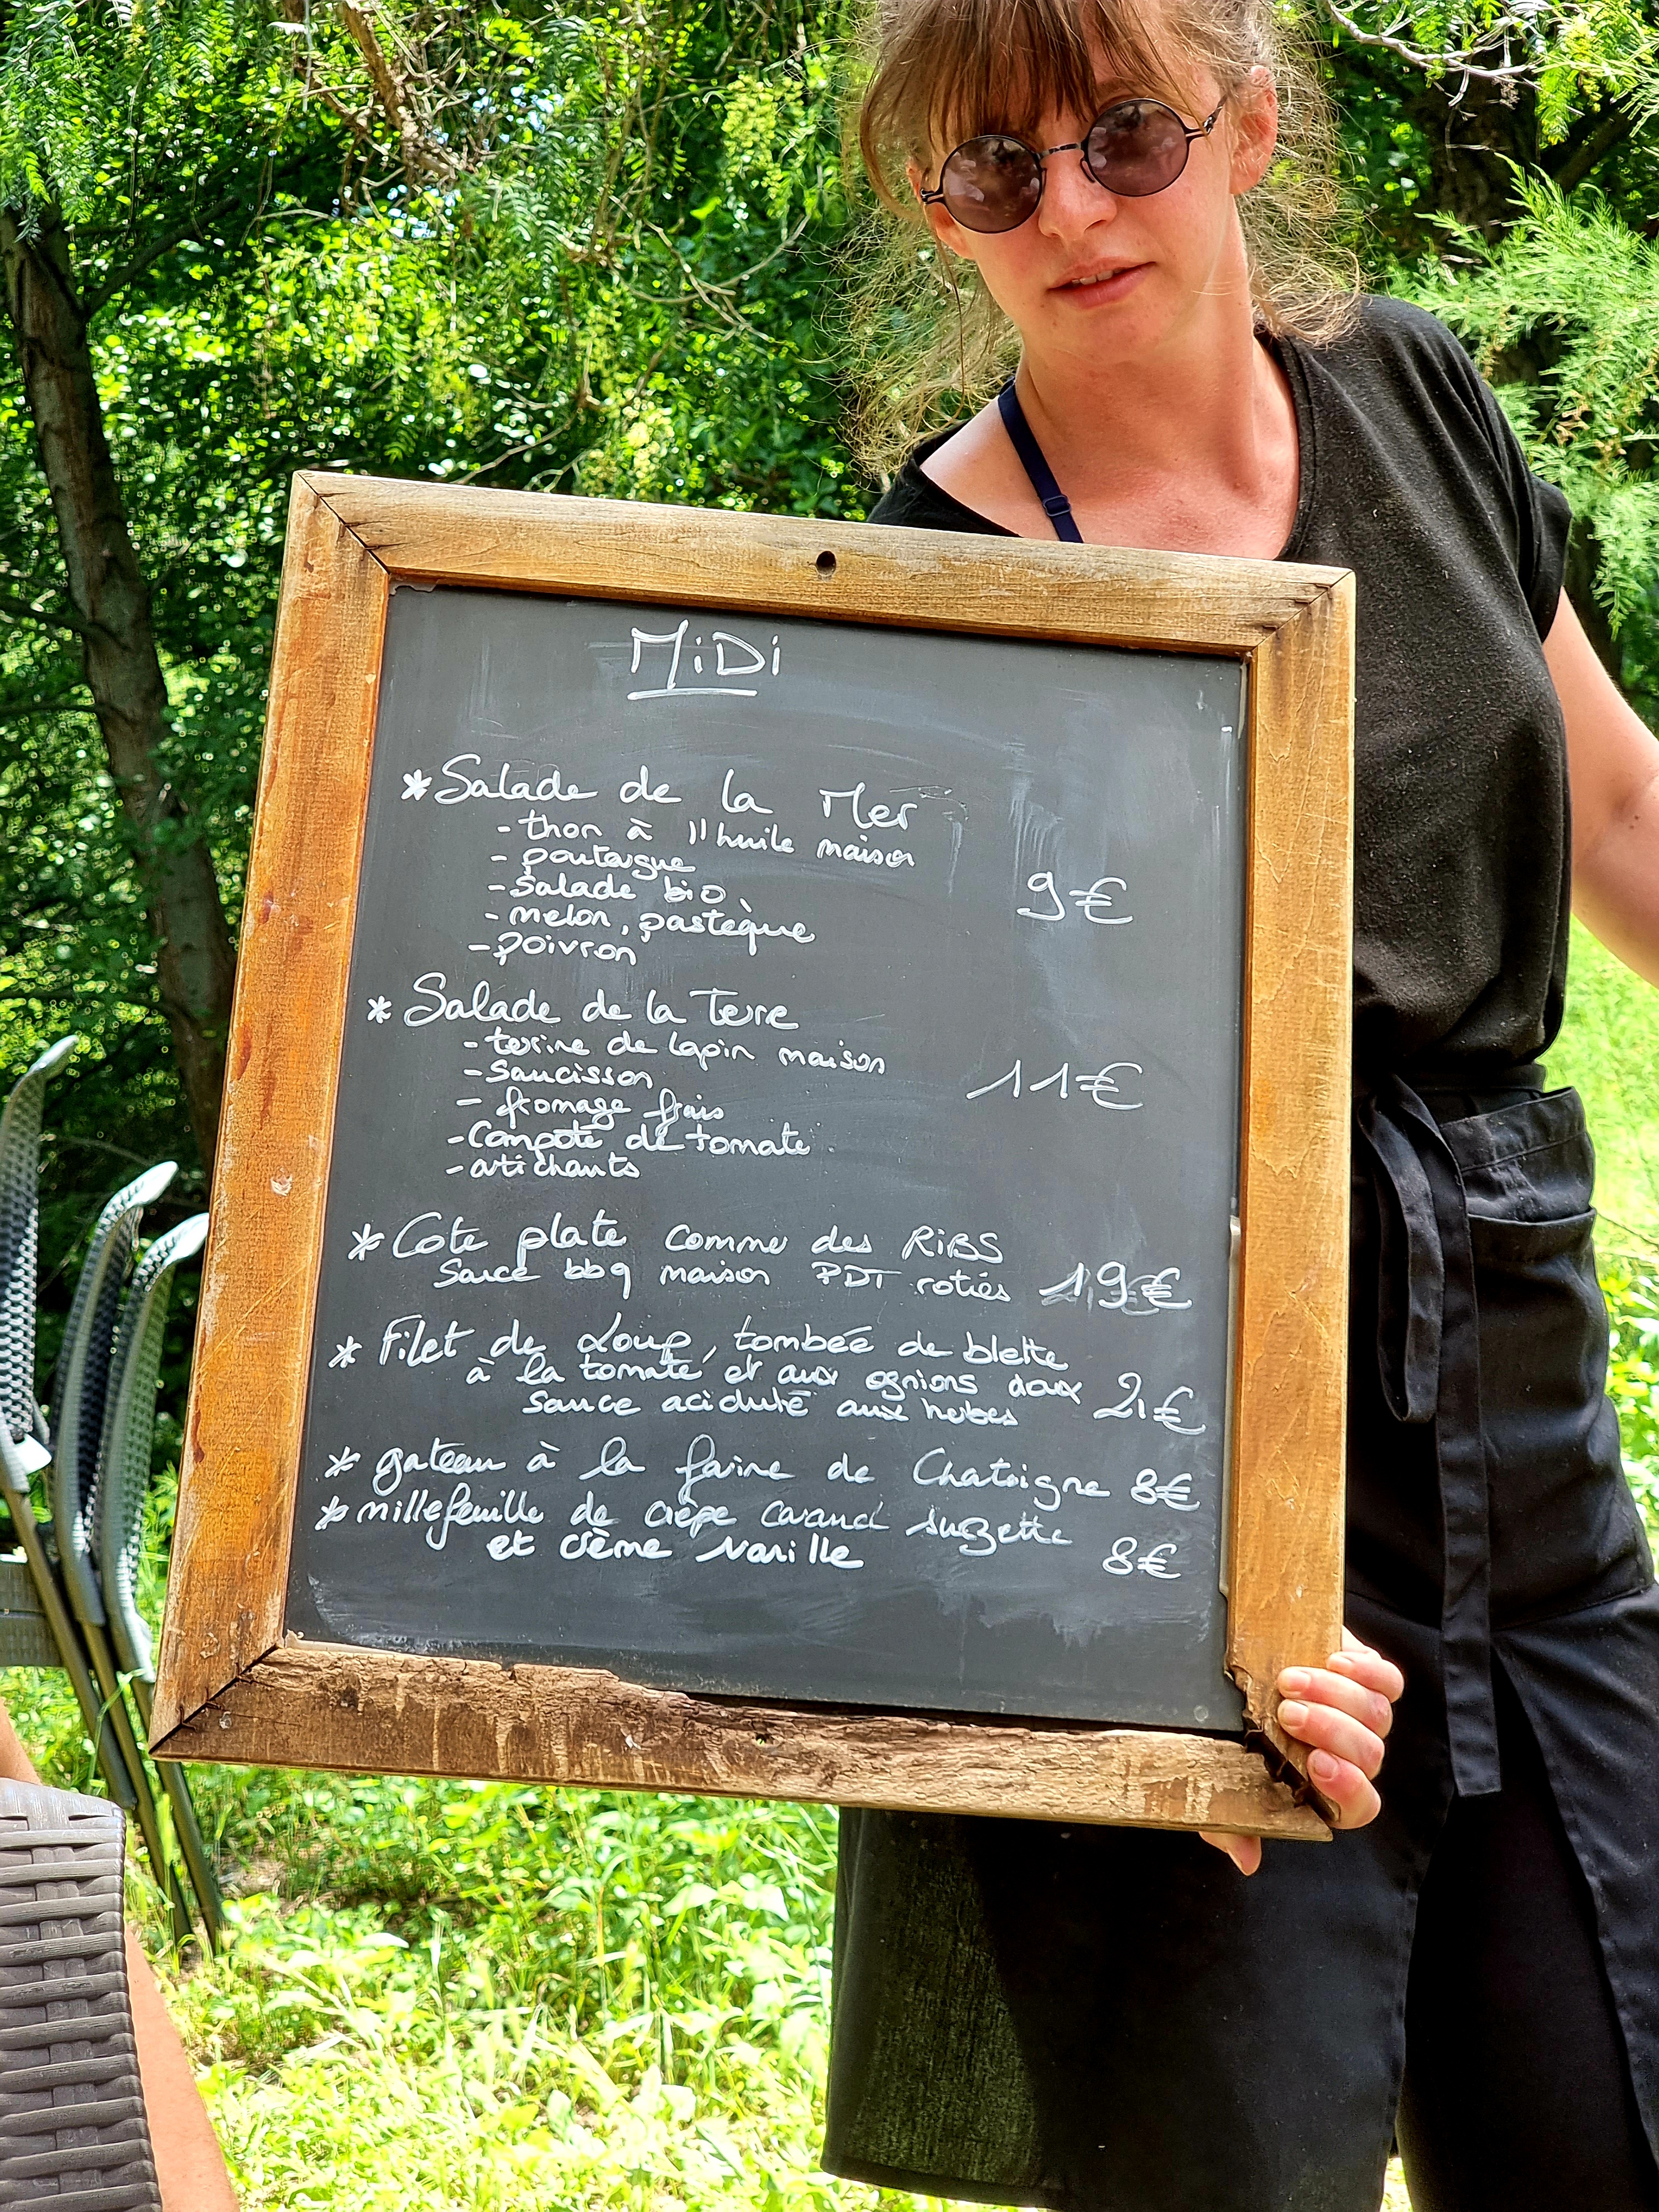 MiDi
* Salade de la Mer
- thon à l'huile maison
- poutargue
- Salade bio
9€
- melon, pastèque
- poivron
* Salade de la Terre
- terrine de lapin maison
- Saucisson
11€
- fromage frais
- Compote de tomate
- artichauts
* Cote plate comme des RiBS
Sauce bbq maison PDT rotiés 19€
* Filet de Loup, tombée de blette
à la tomate et aux ognions doux 21€
Sauce acidulé aux herbes
* gateau à la farine de Chataigne 8€
* millefeuille de crèpe suzette
et crème vanille 8€